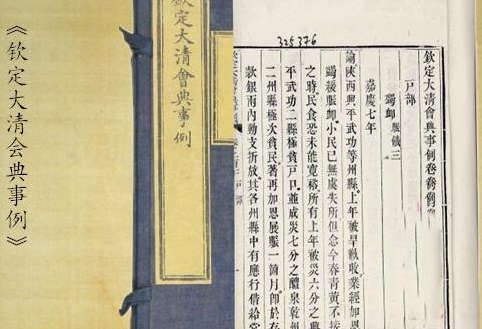 《钦定大清会典事例》
欽定大清會典事例
325376
欽定大清會典事例卷
戶部
蠲卹 賑饑三
嘉慶七年
諭陝西興平武功等州縣上年被旱歉收業經加恩
蠲緩賑卹小民已無虞失所但念今春青黃不接
之時民食恐未能寬裕所有上年被災六分之興
平武功二縣極貧戶口並成災七分之醴泉乾州
二州縣極次貧民著再加恩展賑一箇月即於存
款銀兩內動支折放其各州縣中有應行借給